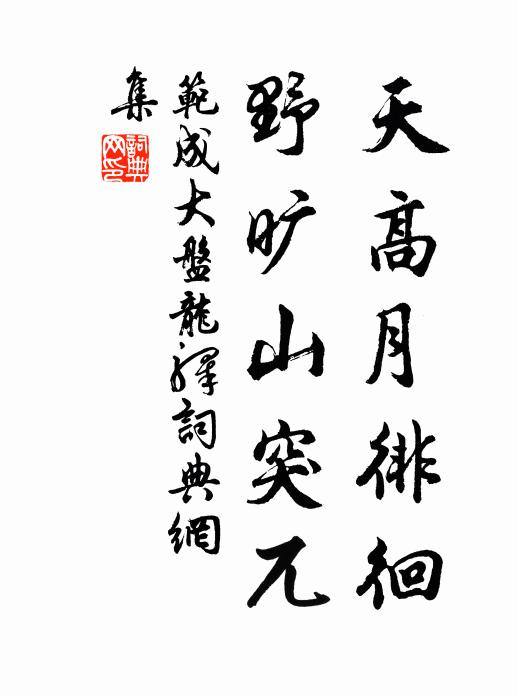 天高月徘徊
野旷山突兀
範成大盤龍驛詞典網
集
詞典网印